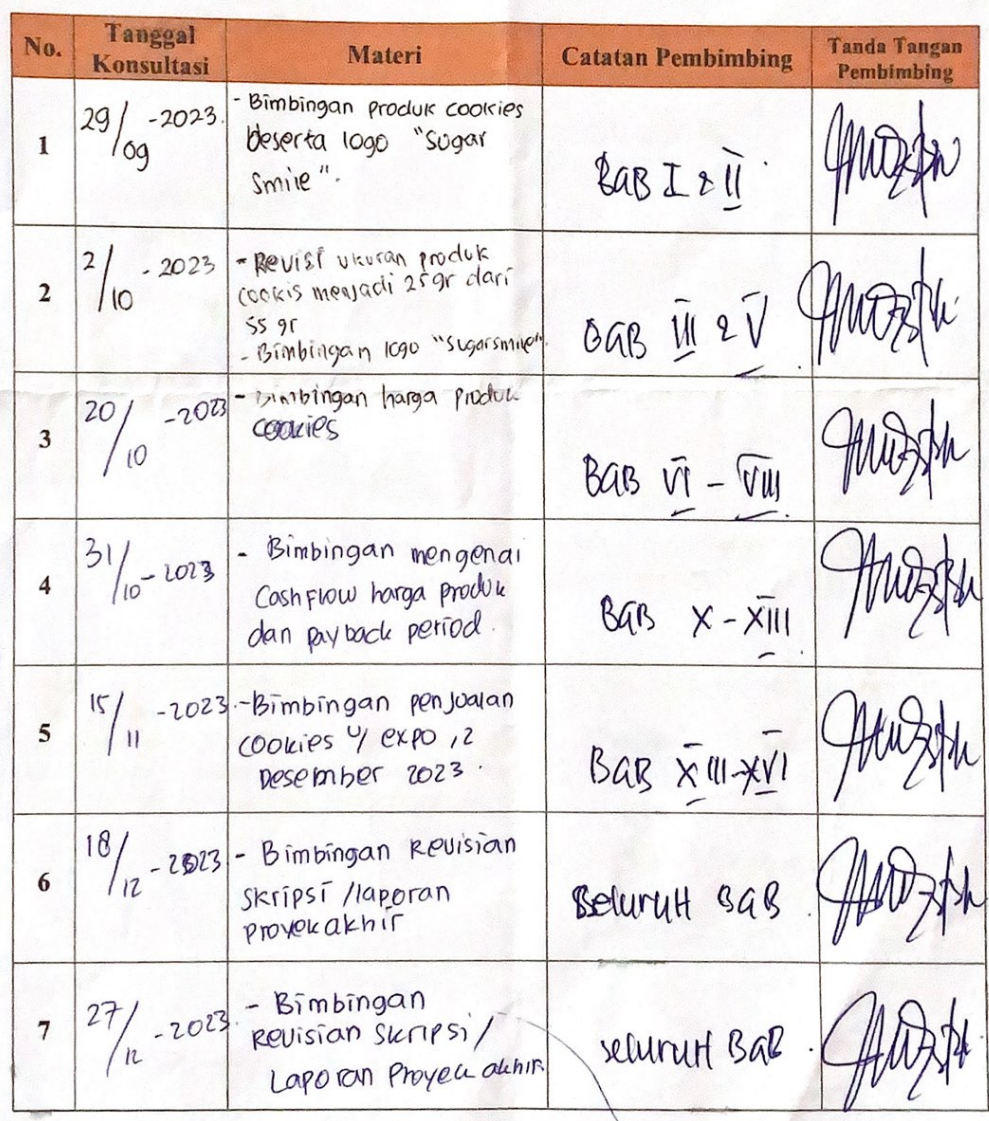 No. Tanggal Konsultasi Materi Catatan Pembimbing Tanda Tangan Pembimbing
1
29/09 -2023.
- Bimbingan produk cookies
beserta logo "Sugar
Smile".
BAB I & II
2
2/10 -2023
- Revisi ukuran produk
cookis menjadi 25gr dari
55 gr
- Bimbingan logo "Sugarsmile".
BAB III & V
3
20/10 -2023
- Bimbingan harga produk
cookies
BAB VI - VIII
4
31/10 - 2023
- Bimbingan mengenai
Cashflow harga produk
dan payback period.
BAB X - XIII
5
15/11 -2023.
- Bimbingan penjualan
cookies u/ expo, 2
Desember 2023.
BAB XIII-XVI
6
18/12 -2023
- Bimbingan Revisian
skripsi /laporan
proyek akhir
Seluruh BAB
7
27/12 -2023.
- Bimbingan
Revisian Skripsi/
Laporan Proyek akhir.
seluruh BAB